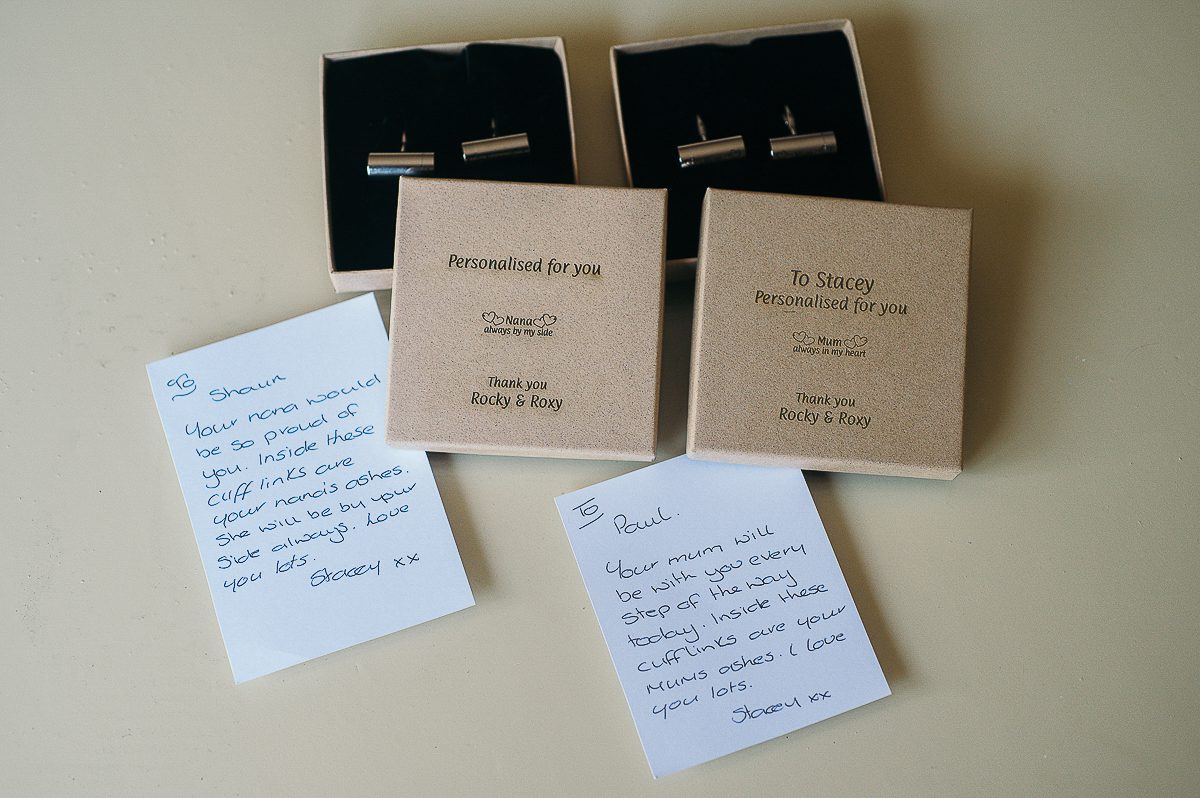 Personalised for you
Nana
always by my side
Thank you
Rocky & Roxy
To Stacey
Personalised for you
Mum
always in my heart
Thank you
Rocky & Roxy
To
Shaun
Your nana would
be so proud of
you. Inside these
cuff links are
your nana's ashes.
She will be by your
side always. Love
you lots.
Stacey xx
To
Paul.
Your mum will
be with you every
step of the way
today. Inside these
cufflinks are your
mums ashes. I love
you lots.
Stacey xx